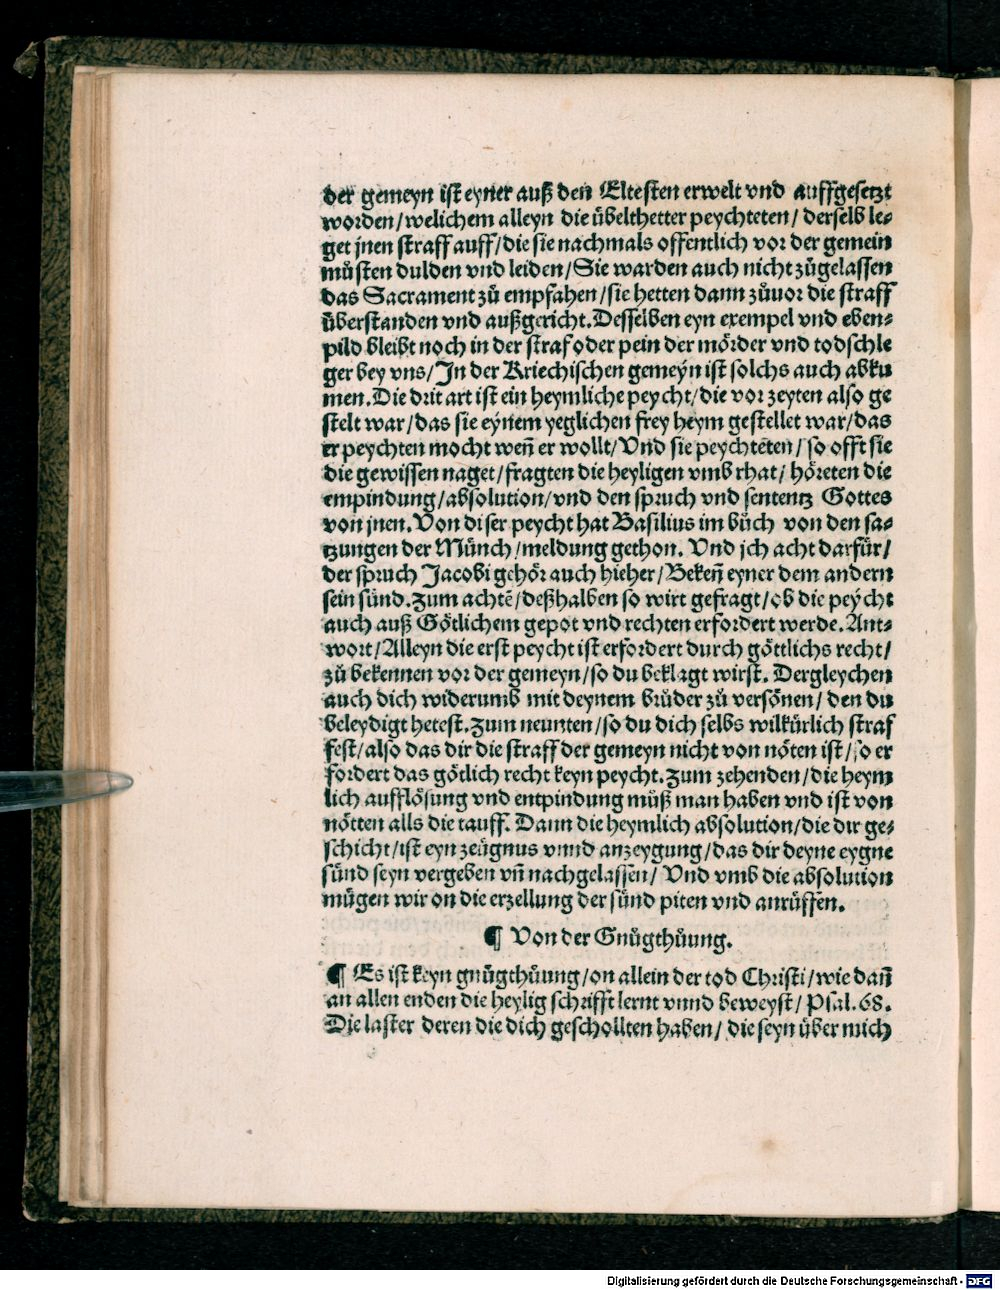 der gemeyn ist eyner auß den Eltesten erwelt vnd auffgesetzt
worden/welichem alleyn die übelthetter peychteten/ derselb le⸗
get jnen straff auff/die sie nachmals offentlich vor der gemein
můsten dulden vnd leiden/Sie warden auch nicht zůgelassen
das Sacrament zů empfahen/sie hetten dann zůuor die straff
überstanden vnd außgericht. Desselben eyn exempel vnd eben⸗
pild bleibt noch in der straf oder pein der mörder vnd todschle
ger bey vns/In der Kriechischen gemeyn ist solchs auch abku
men. Die drit art ist ein heymliche peycht/die vor zeyten also ge
stelt war/das sie eynem yeglichen frey heym gestellet war/das
er peychten mocht weñ er wollt/Vnd sie peychteten/so offt sie
die gewissen naget/fragten die heyligen vmb rhat/ höreten die
empindung/absolution/vnd den spruch vnd sententz Gottes
von jnen. Von diser peycht hat Basilius im bůch von den sa⸗
tzungen der Münch/meldung gethon. Vnd jch acht darfür/
der spruch Jacobi gehör auch hieher/Bekeñ eyner dem andern
sein sünd. Zum achtē/deßhalben so wirt gefragt/ob die peycht
auch auß Götlichem gepot vnd rechten erfordert werde. Ant⸗
wort/Alleyn die erst peycht ist erfordert durch göttlichs recht/
zů bekennen vor der gemeyn/so du beklagt wirst. Dergleychen
auch dich widerumb mit deynem brůder zů versönen/ den du
beleydigt hetest. Zum neunten/so du dich selbs wilkürlich straf
fest/also das dir die straff der gemeyn nicht von nöten ist/so er
fordert das götlich recht keyn peycht. Zum zehenden/die heym
lich aufflösung vnd entpindung můß man haben vnd ist von
nötten alls die tauff. Dann die heymlich absolution/die dir ge⸗
schicht/ist eyn zeügnus vnnd anzeygung/das dir deyne eygne
sünd seyn vergeben vñ nachgelassen/ Vnd vmb die absolution
mügen wir on die erzellung der sünd piten vnd anrůffen.
¶ Von der Gnůgthůung.
¶ Es ist keyn gnůgthůung/on allein der tod Christi/wie dañ
an allen enden die heylig schrifft lernt vnnd beweyst/Psal. 68.
Die laster deren die dich geschollten haben/ die seyn über mich
Digitalisierung gefördert durch die Deutsche Forschungsgemeinschaft - DFG